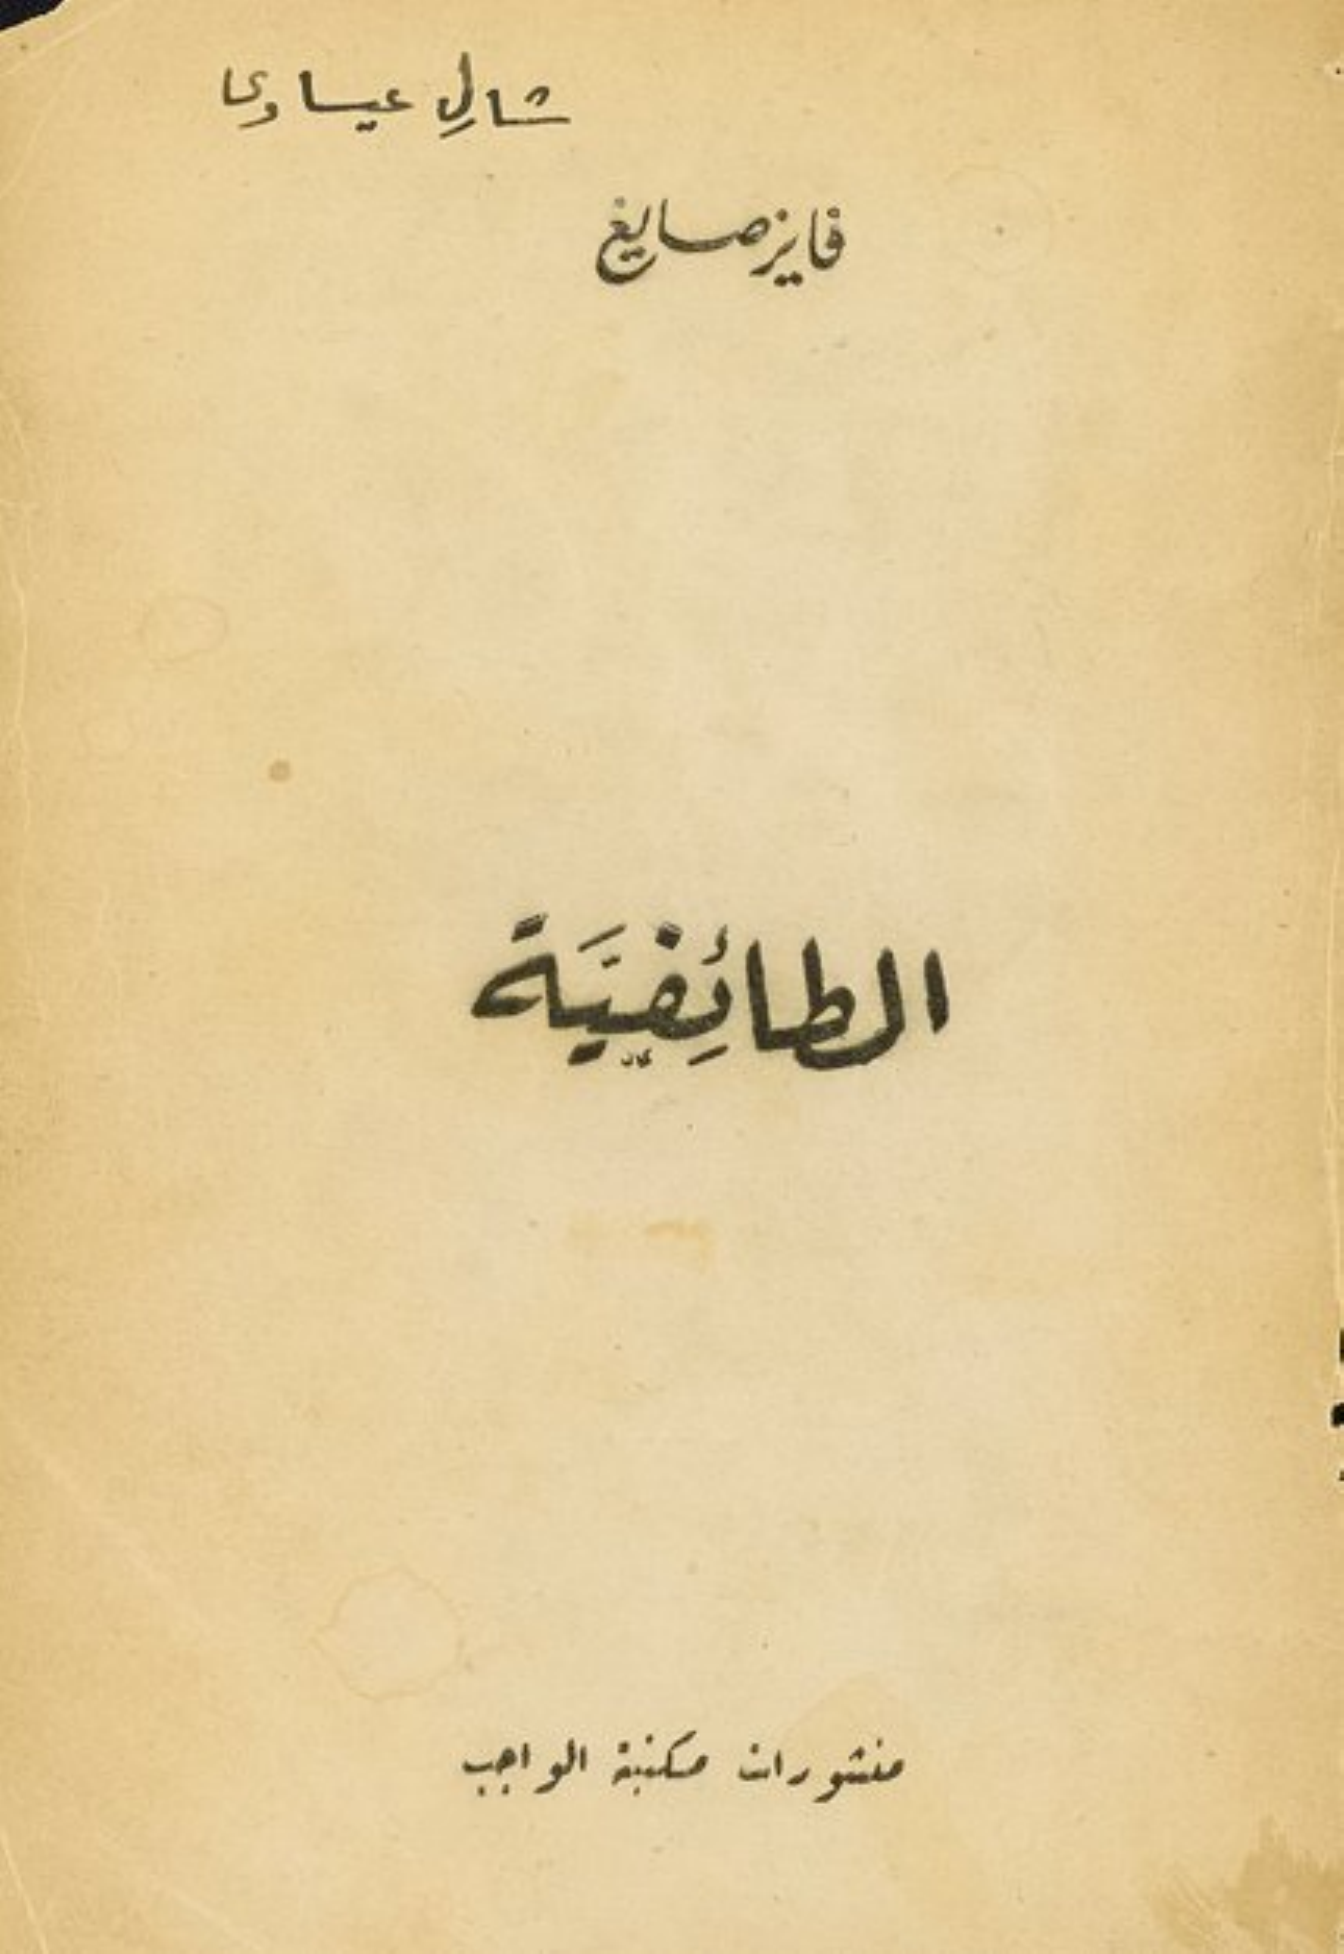 شارل عيساوي
فايز صايغ
الطائِفيَّة
منشورات مكتبة الواجب